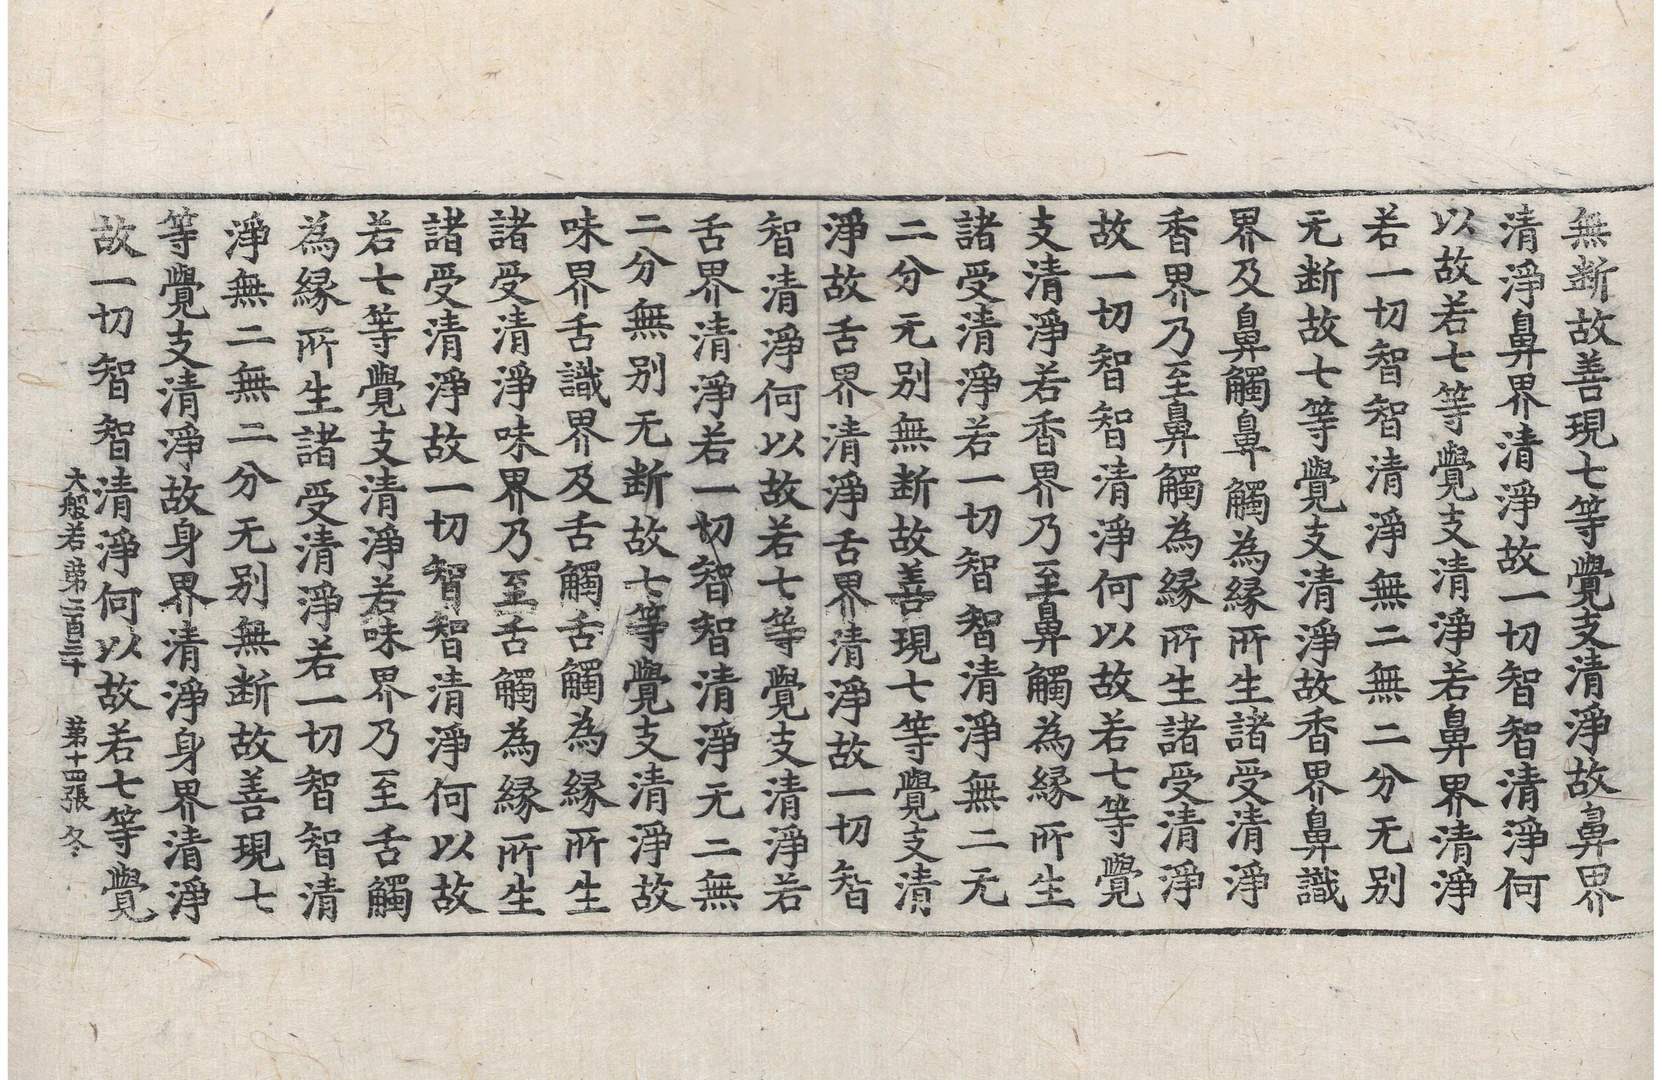 無断故善現七等覺支清淨故鼻界
清淨鼻界清淨故一切智智清淨何
以故若七等覺支清淨若鼻界清淨
若一切智智清淨無二無二分无别
无断故七等覺支清淨故香界鼻識
界及鼻觸鼻觸為緣所生諸受清淨
香界乃至鼻觸為緣所生諸受清淨
故一切智智清淨何以故若七等覺
支清淨若香界乃至鼻觸為緣所生
諸受清淨若一切智智清淨無二无
二分无别無断故善現七等覺支清
淨故舌界清淨舌界清淨故一切智
智清淨何以故若七等覺支清淨若
舌界清淨若一切智智清淨无二無
二分無别无断故七等覺支清淨故
味界舌識界及舌觸舌觸為緣所生
諸受清淨味界乃至舌觸為緣所生
諸受清淨故一切智智清淨何以故
若七等覺支清淨若味界乃至舌觸
為緣所生諸受清淨若一切智智清
淨無二無二分无别無断故善現七
等覺支清淨故身界清淨身界清淨
故一切智智清淨何以故若七等覺
大般若第二百三十 第十四張 冬